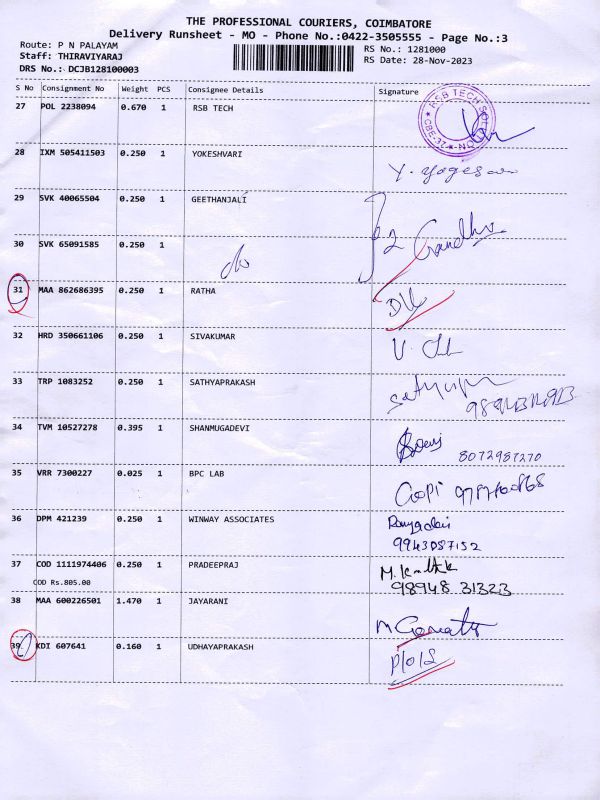 THE PROFESSIONAL COURIERS, COIMBATORE
Delivery Runsheet - MO - Phone No.:0422-3505555 - Page No.:3
Route: P N PALAYAM
RS No.: 1281000
Staff: THIRAVIYARAJ
RS Date: 28-Nov-2023
DRS No.: DCJB128100003
S No Consignment No Weight PCS Consignee Details Signature
27 POL 2238094 0.670 1 RSB TECH
RSB TECH
28 IXM 505411503 0.250 1 YOKESHVARI
29 SVK 40065504 0.250 1 GEETHANJALI
30 SVK 65091585 0.250 1
do
31 MAA 862686395 0.250 1 RATHA
DL
32 HRD 350661106 0.250 1 SIVAKUMAR
33 TRP 1083252 0.250 1 SATHYAPRAKASH
34 TVM 10527278 0.395 1 SHANMUGADEVI
8072987270
35 VRR 7300227 0.025 1 BPC LAB
Gopi
36 DPM 421239 0.250 1 WINWAY ASSOCIATES
9943087152
37 COD 1111974406 0.250 1 PRADEEPRAJ
COD Rs.805.00
98948 31323
38 MAA 600226501 1.470 1 JAYARANI
39 KDI 607641 0.160 1 UDHAYAPRAKASH